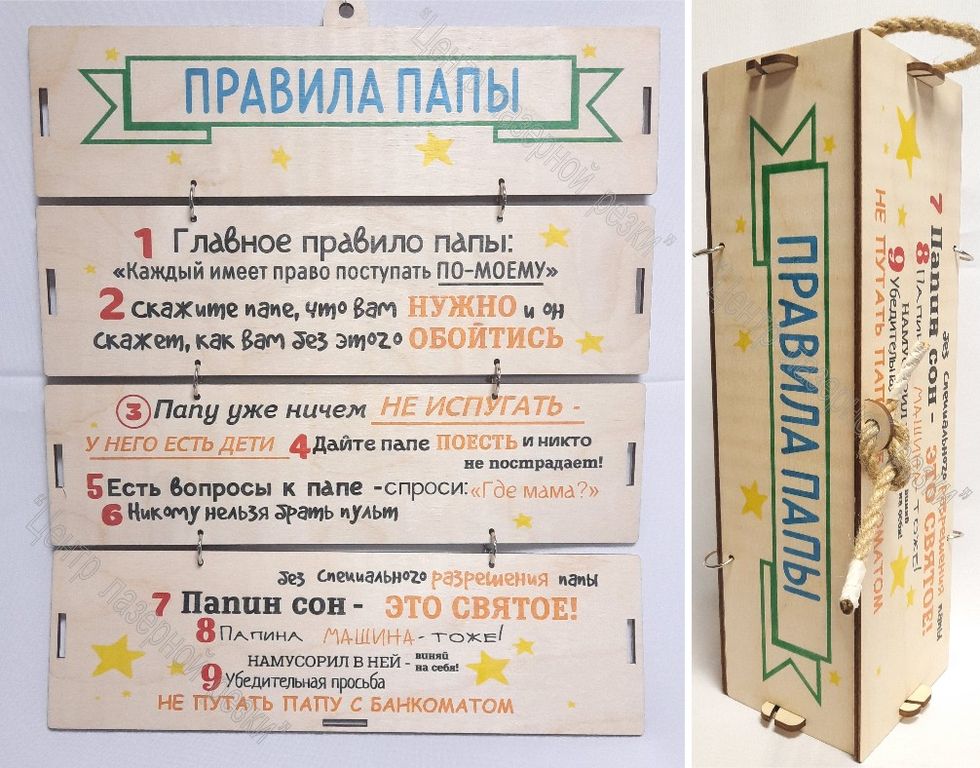 ПРАВИЛА ПАПЫ
1 Главное правило папы:
«Каждый имеет право поступать ПО-МОЕМУ»
2 Скажите папе, что вам НУЖНО и он
скажет, как вам без этого ОБОЙТИСЬ
3 Папу уже ничем НЕ ИСПУГАТЬ -
У НЕГО ЕСТЬ ДЕТИ 4 Дайте папе ПОЕСТЬ и никто
не пострадает!
5 Есть вопросы к папе - спроси: «Где мама?»
6 Никому нельзя брать пульт
без специального разрешения папы
7 Папин сон - ЭТО СВЯТОЕ!
8 ПАПИНА МАШИНА - ТОЖЕ!
НАМУСОРИЛ В НЕЙ - виняй
на себя!
9 Убедительная просьба
НЕ ПУТАТЬ ПАПУ С БАНКОМАТОМ
"Центр лазерной резки"
"Центр лазерной резки"
ПРАВИЛА ПАПЫ
без специального разрешения папы
7 Папин сон - ЭТО СВЯТОЕ!
8 ПАПИНА МАШИНА ТОЖЕ!
НАМУСОРИЛ
на себя!
9 Убедительная
НЕ ПУТАТЬ ПАПУ БАНКОМАТОМ